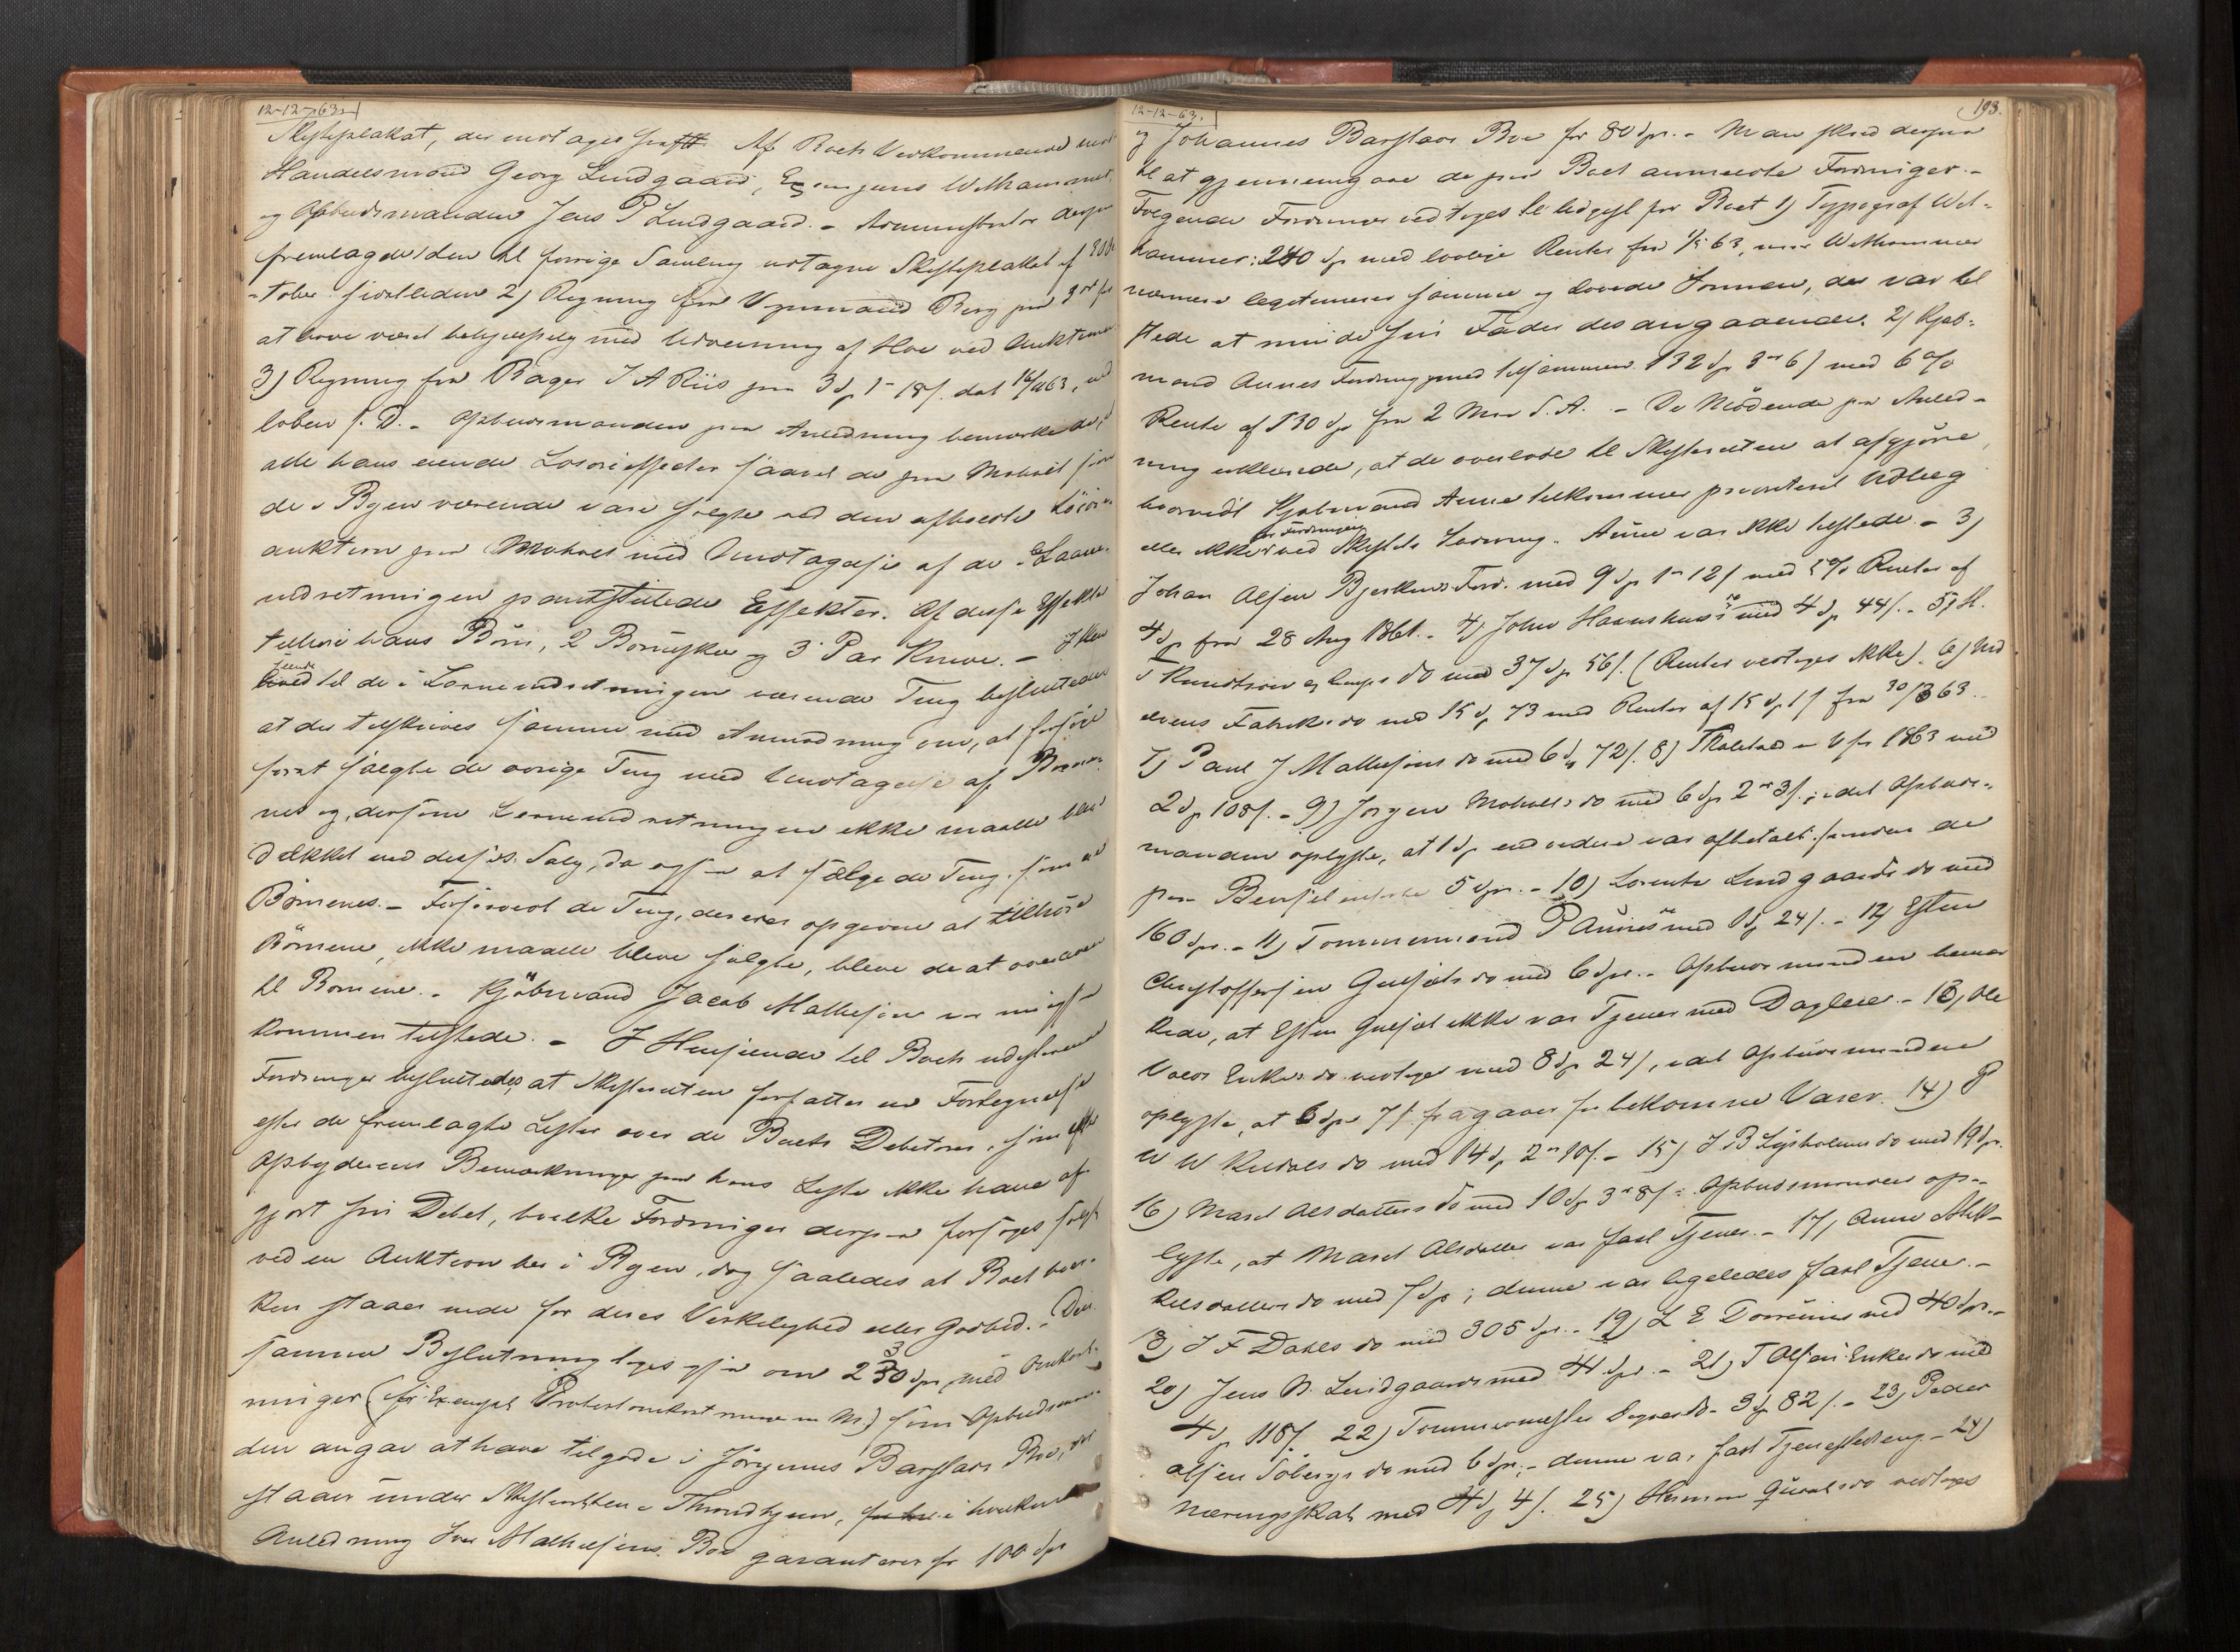 12-12-63.
Skifteplakat, der modtages . Af Boets Vedkommende mødte
Handelsmand Georg Lindgaard, Wilhammer
og Opbudsmanden Jens P Lindgaard. - Administrator derpaa
fremlagde 1) den til forrige Samling udtagne Skifteplakat af
-tober sidstleden 2) Regning fra Vognmand Berg paa 3 ort for
at have været behjælpelig med af Hø ved Auktionen
3) Regning fra Bager J A Riis paa 3 Sp 1 - 18 s. dat 16/11 63, ved
loben s. D. - Opbudsmanden paa Anledning bemærkede, at
alle hans eiende Løsøreeffecter saavel de paa Moholt som
de i Byen værende vare solgte ved den afholdte Løsøre-
auktion paa Moholt med Undtagelse af de i Laane-
indretningen pantstillede Effekter. Af disse Effekter
tilhøre hans Børn, 2 Børneskeer og 3 Par Knive. - I Hen
seende til de i Laaneindretningen værende Ting besluttedes
at der tilskrives samme med Anmodning om, at forsøge
først solgte de øvrige Ting med Undtagelse af Børne-
nes og, dersom Laaneindretningen ikke maatte blive
dækket ved disses Salg, da ogsaa at sælge de Ting, som er
Børnenes. - Forsaavidt de Ting, der ere opgivne at tilhøre
Børnene, ikke maatte blive solgte, bleve de at overlevere
til Børnene. - Kjøbmand Jacob Mathesen var nu ogsaa
kommen tilstede. - I Henseende til Boets udestaaende
Fordringer besluttedes, at Skifteretten forfatter en Fortegnelse
efter de fremlagte Lister over de Boets Debitorer, som efter
Opbyderens Bemærkninger paa hans Liste ikke have af-
gjort sin Debet, hvilke Fordringer derpaa forsøges solgt
ved en Auktion her i Byen, dog saaledes at Boet hver-
ken staaer inde for deres Virkelighed eller Godhed. - Den
samme Beslutning toges ogsaa om 230 Spd, med Omkost-
ninger (for Exempel Protestomkostninger m. M.) som Opbudsman-
den angav at have tilgode i Jørginus Barstads Bo, der
staaer under Skifteretten i Throndhjem, i hvilken
Anledning Iver Mathesens Bo garanterer for 100 Spd
12-12-63.
193.
og Johannes Barstads Bo for 80 Spd. - Man skred derpaa
til at gjennemgaae de paa Boet anmeldte Fordringer. -
Følgende Fordringer vedtoges til Udgift for Boet 1) Typograf Wil-
hammer: 240 Sp med lovlige Renter fra 1/5 63, naar Wilhammer
nærmere legitimerer samme og lovede Sønnen, der var til
stede at minde sin Fader desangaaende. 2) Kjøb-
mand Aunes Fordring med tilsammen 132 Sp 3 ort 6 s med 6 %
Rente af 130 Sp fra 2 Mai d. A. - De Mødende paa Anled-
ning erklærede, at de overlode til Skifteretten at afgjøre,
hvorvidt Kjøbmand Aune tilkommer prioriteret Udlæg
for Fordringen
eller ikke ved Skiftets Slutning. Aune var ikke tilstede. - 3)
Johan Olsen Bjerkens Ford. med 9 Sp 1 ort 12 s med 5 % Renter af
4 Sp fra 28 Aug 1861. - 4) John Haanshuus's do med 4 Sp 44 s. - 5) H.
T Knudtzon & Comps do med 37 Sp 56 s. (Renter vedtages ikke). 6)
elvens Fabriks do med 15 Sp 73 med Renter af 15 Sp 1 s fra 30/3 63.
7) Paul J Mathesens do med 6 Sp 72 s. 8) 1863 med
2 Sp 108 s. - 9) Jørgen Moholts do med 6 Sp 2 ort 3 s, idet Opbuds-
manden oplyste, at 1 Sp endvidere var afbetalt foruden de
paa Beviset anførte 5 Spd. - 10) Lorents Lindgaards do med
160 Spd. - 11) Tømmermand P Aunes do med 1 Sp 24 s. - 12) Esten
Christoffersen Gulsets do med 6 Spd. - Opbudsmanden bemær
kede, at Esten Gulset ikke var Tjener med Dagleier. - 13) Ole
Volds Enkes do vedtoges med 8 Sp 24 s, idet Opbudsmanden
oplyste, at 6 Spd 7 s fragaaer for bekomne Varer. 14) P
W W Kildals do med 14 Sp 2 ort 10 s. - 15) J B Lysholms do med 19 Spd.
16) Marit Olsdatters do med 10 Sp 3 ort 8 s. Opbudsmanden op-
lyste, at Marit Olsdatter var fast Tjener. - 17) Anne Mik-
kelsdatters do med 7 Sp; denne var ligeledes fast Tjener. -
18) J F Dahls do med 305 Spd. - 19) L E med 40 Spd. -
20) Jens N. Lindgaards med 41 Spd. - 21) T Olsens Enkes do med
4 Sp 118 s. 22) Tømmermester do - 3 Sp 82 s. - 23) Peder
Olsen Solbergs do med 6 Spd. - denne var fast Tjenestedreng - 24)
Næringsskat med 4 Sp 4 s. 25) Herman do vedtoges